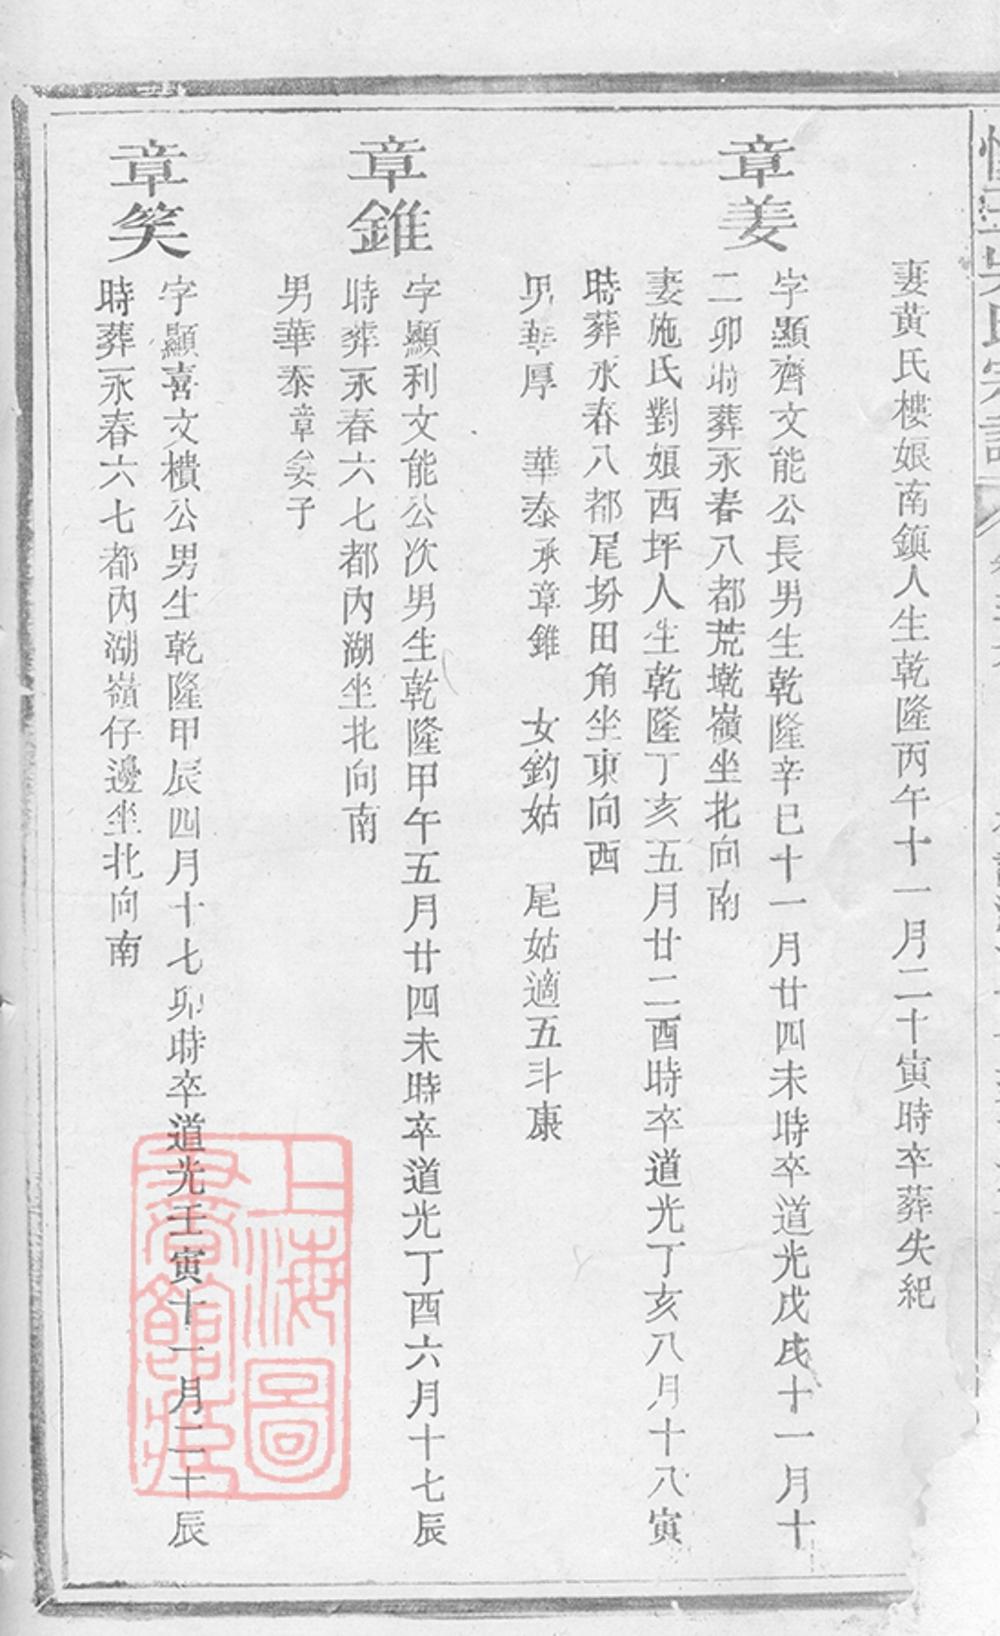 妻黃氏樓娘南鎮人生乾隆丙午十一月二十寅時卒葬失紀
章姜
字顯齊文能公長男生乾隆辛巳十一月廿四未時卒道光戊戌十一月十
二卯時葬永春八都荒墘嶺坐北向南
妻施氏對娘西坪人生乾隆丁亥五月廿二酉時卒道光丁亥八月十八寅
時葬永春八都尾坋田角坐東向西
男華厚 華泰承章錐 女釣姑 尾姑適五斗康
章錐
字顯利文能公次男生乾隆甲午五月廿四未時卒道光丁酉六月十七辰
時葬永春六七都內湖坐北向南
男華泰章姜子
章笑
字顯喜文樻公男生乾隆甲辰四月十七卯時卒道光壬寅十一月二十辰
時葬永春六七都內湖嶺仔邊坐北向南
上海圖
書館藏